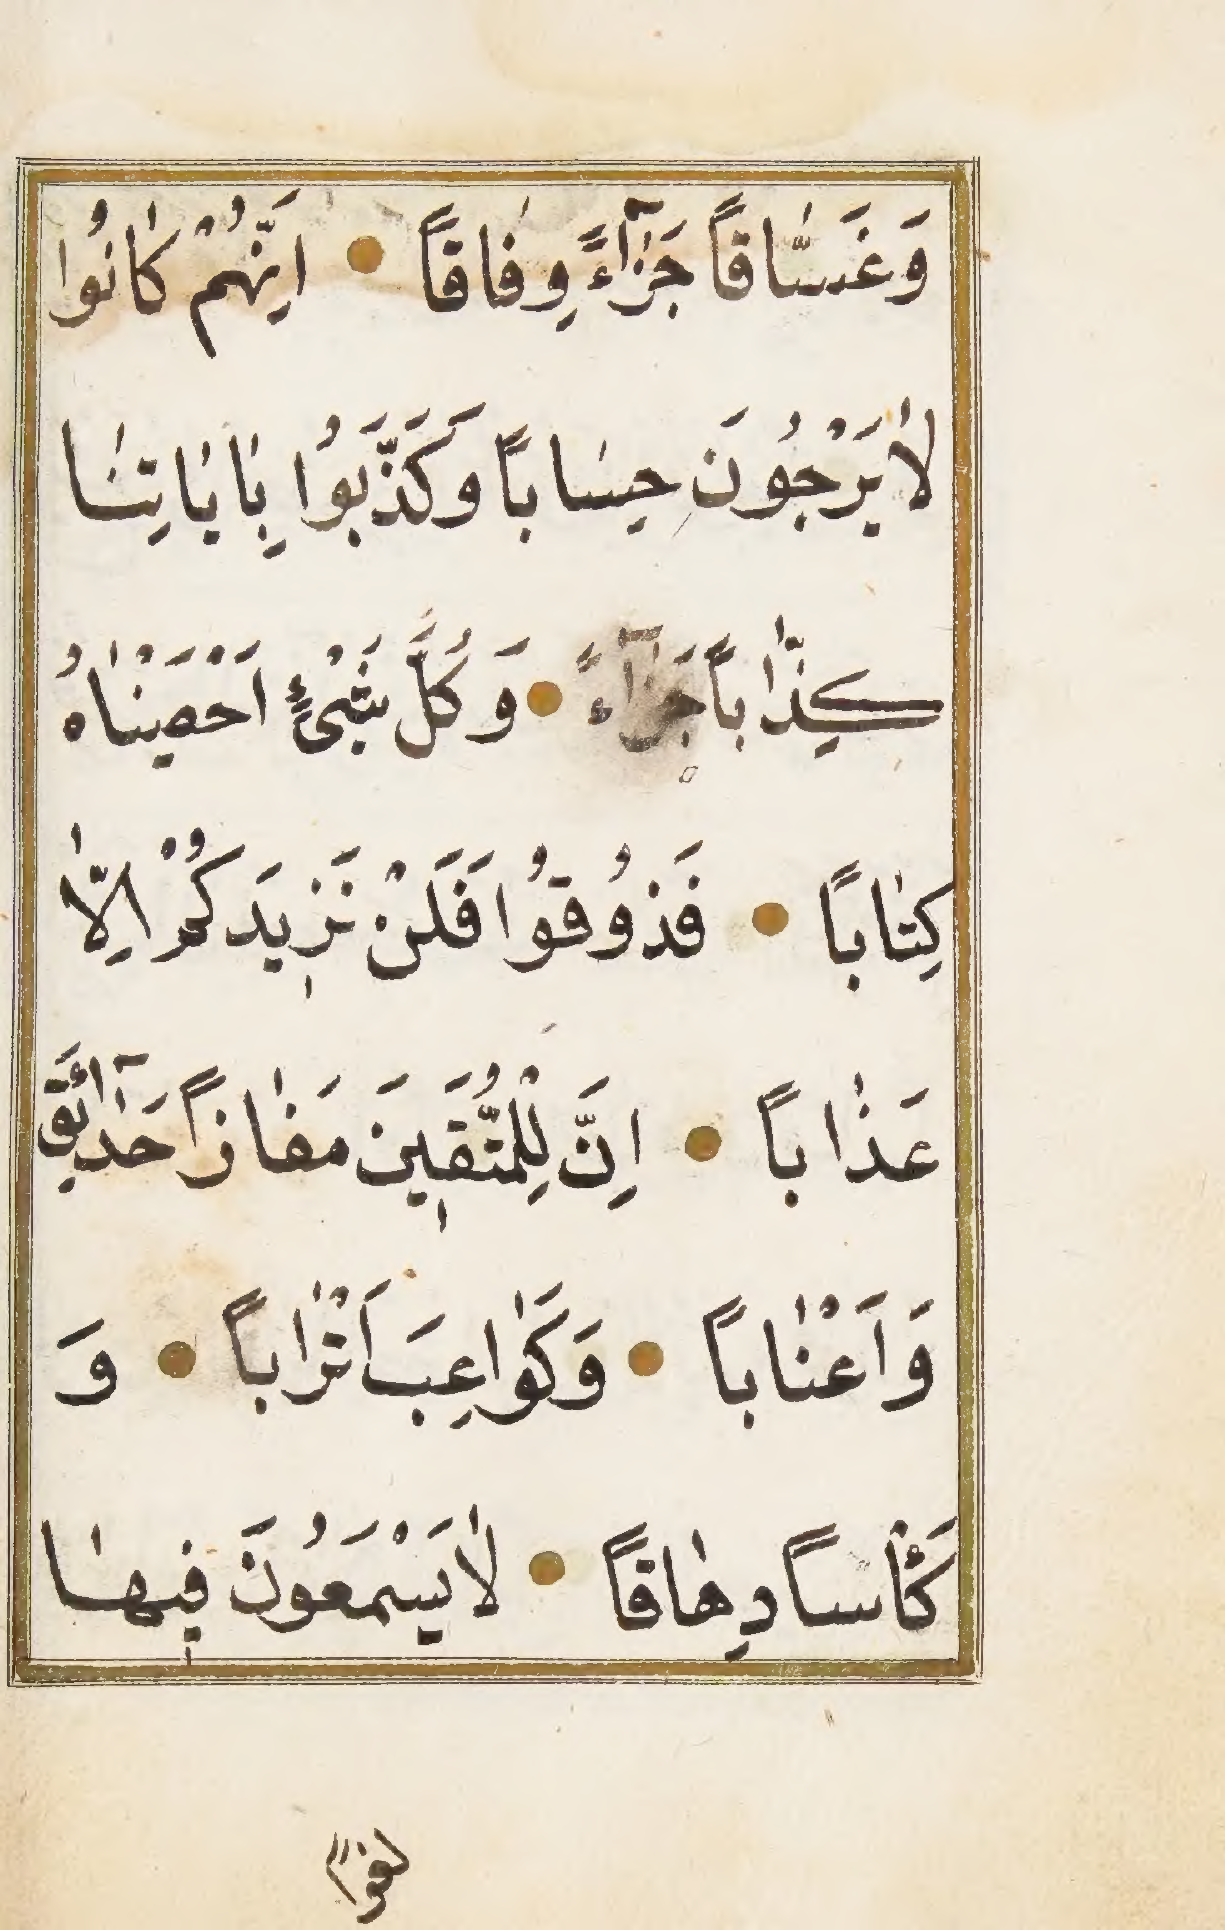 وَغَسَّاقاً جَزَآءً وِفَاقاً ● اِنَّهُمْ كَانُوا
لَا يَرْجُونَ حِسَاباً وَكَذَّبُوا بِاٰيَاتِنَا
كِذَّاباً جَزَآءً ● وَكُلَّ شَيْءٍ اَحْصَيْنَاهُ
كِتَاباً ● فَذُوقُوا فَلَنْ نَزِيدَكُمْ اِلَّا
عَذَاباً ● اِنَّ لِلْمُتَّقِينَ مَفَازاً حَدَآئِقَ
وَاَعْنَاباً ● وَكَوَاعِبَ اَتْرَاباً ● وَ
كَأْساً دِهَاقاً ● لَا يَسْمَعُونَ فِيهَا
لغواً